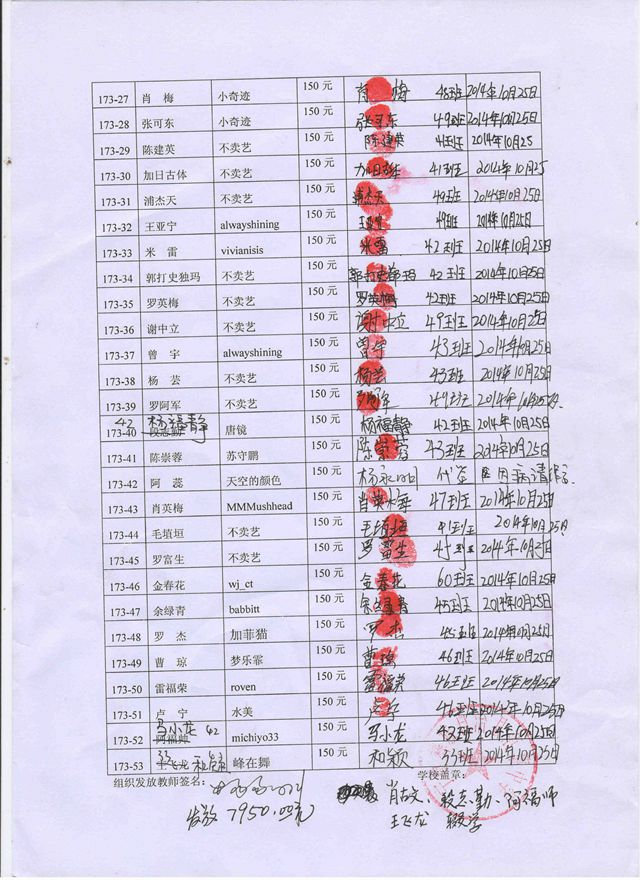 173-27 肖 梅 小奇迹 150 元 肖梅 48班 2014年10月25日
173-28 张可东 小奇迹 150 元 张可东 49班 2014年10月25日
173-29 陈建英 不卖艺 150 元 陈建英 41班 2014年10月25
173-30 加日古体 不卖艺 150 元 加日古体 41班 2014年10月25
173-31 浦杰天 不卖艺 150 元 浦杰天 49班 2014年10月25日
173-32 王亚宁 alwayshining 150 元 王亚宁 49班 2014年10月25日
173-33 米 雷 vivianisis 150 元 米雷 42班 2014年10月25日
173-34 郭打史独玛 不卖艺 150 元 郭打史独玛 42班 2014年10月25日
173-35 罗英梅 不卖艺 150 元 罗英梅 42班 2014年10月25日
173-36 谢中立 不卖艺 150 元 谢中立 49班 2014年10月25日
173-37 曾 宇 alwayshining 150 元 曾宇 43班 2014年10月25日
173-38 杨 芸 不卖艺 150 元 杨芸 43班 2014年10月25日
173-39 罗阿军 不卖艺 150 元 罗阿军 49班 2014年10月25日
42 杨福静
173-40 段志勤 唐镜 150 元 杨福静 42班 2014年10月25日
173-41 陈崇蓉 苏守鹏 150 元 陈崇蓉 43班 2014年10月25日
173-42 阿 蕊 天空的颜色 150 元 代签 因病请假
173-43 肖英梅 MMMushhead 150 元 肖英梅 47班 2014年10月25日
173-44 毛埴垣 不卖艺 150 元 毛埴垣 41班 2014年10月25日
173-45 罗富生 不卖艺 150 元 罗富生 45班 2014年10月25日
173-46 金春花 wj_ct 150 元 金春花 60班 2014年10月25日
173-47 余绿青 babbitt 150 元 余绿青 45班 2014年10月25日
173-48 罗 杰 加菲猫 150 元 罗杰 45班 2014年10月25日
173-49 曹 琼 梦乐霏 150 元 曹琼 46班 2014年10月25日
173-50 雷福荣 roven 150 元 雷福荣 46班 2014年10月25日
173-51 卢 宁 水美 150 元 卢宁 46班 2014年10月25日
马小龙 42
173-52 阿福帅 michiyo33 150 元 马小龙 42班 2014年10月25日
33 和颖
173-53 王飞龙 峰在舞 150 元 和颖 33班 2014年10月25日
组织发放教师签名： 学校盖章：
发放7950.00元 肖古文、段志勤、阿福帅
王飞龙 辍学